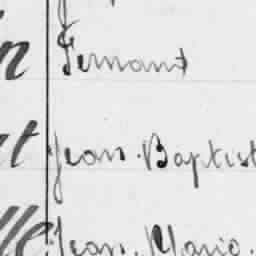 Fernand
Jean Baptist
Jean Mario